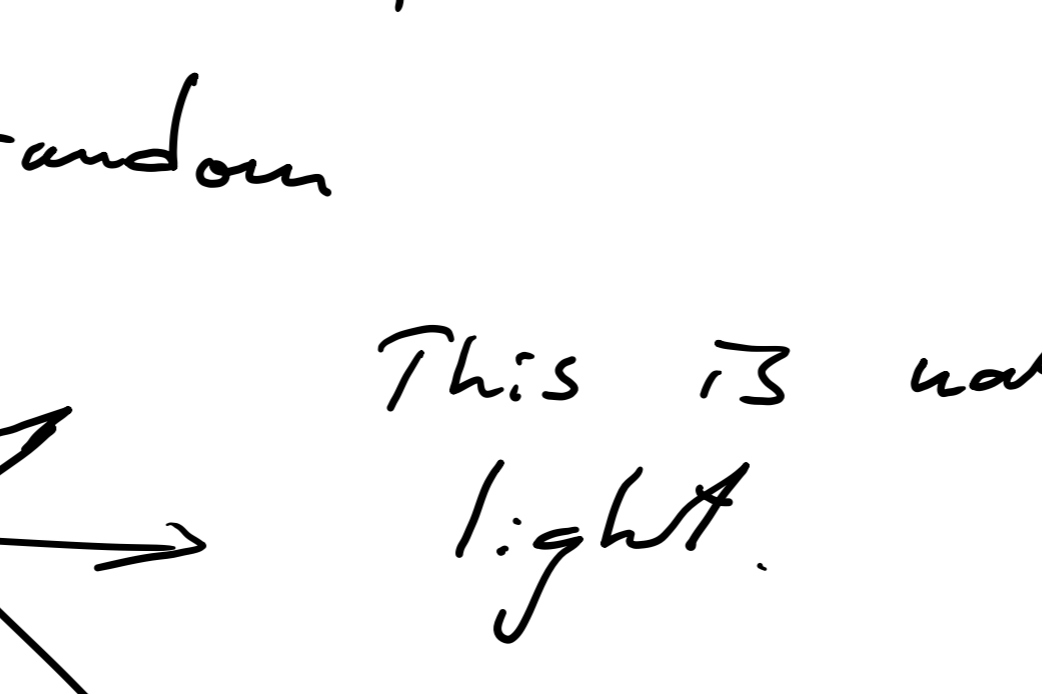 random
This is
light.